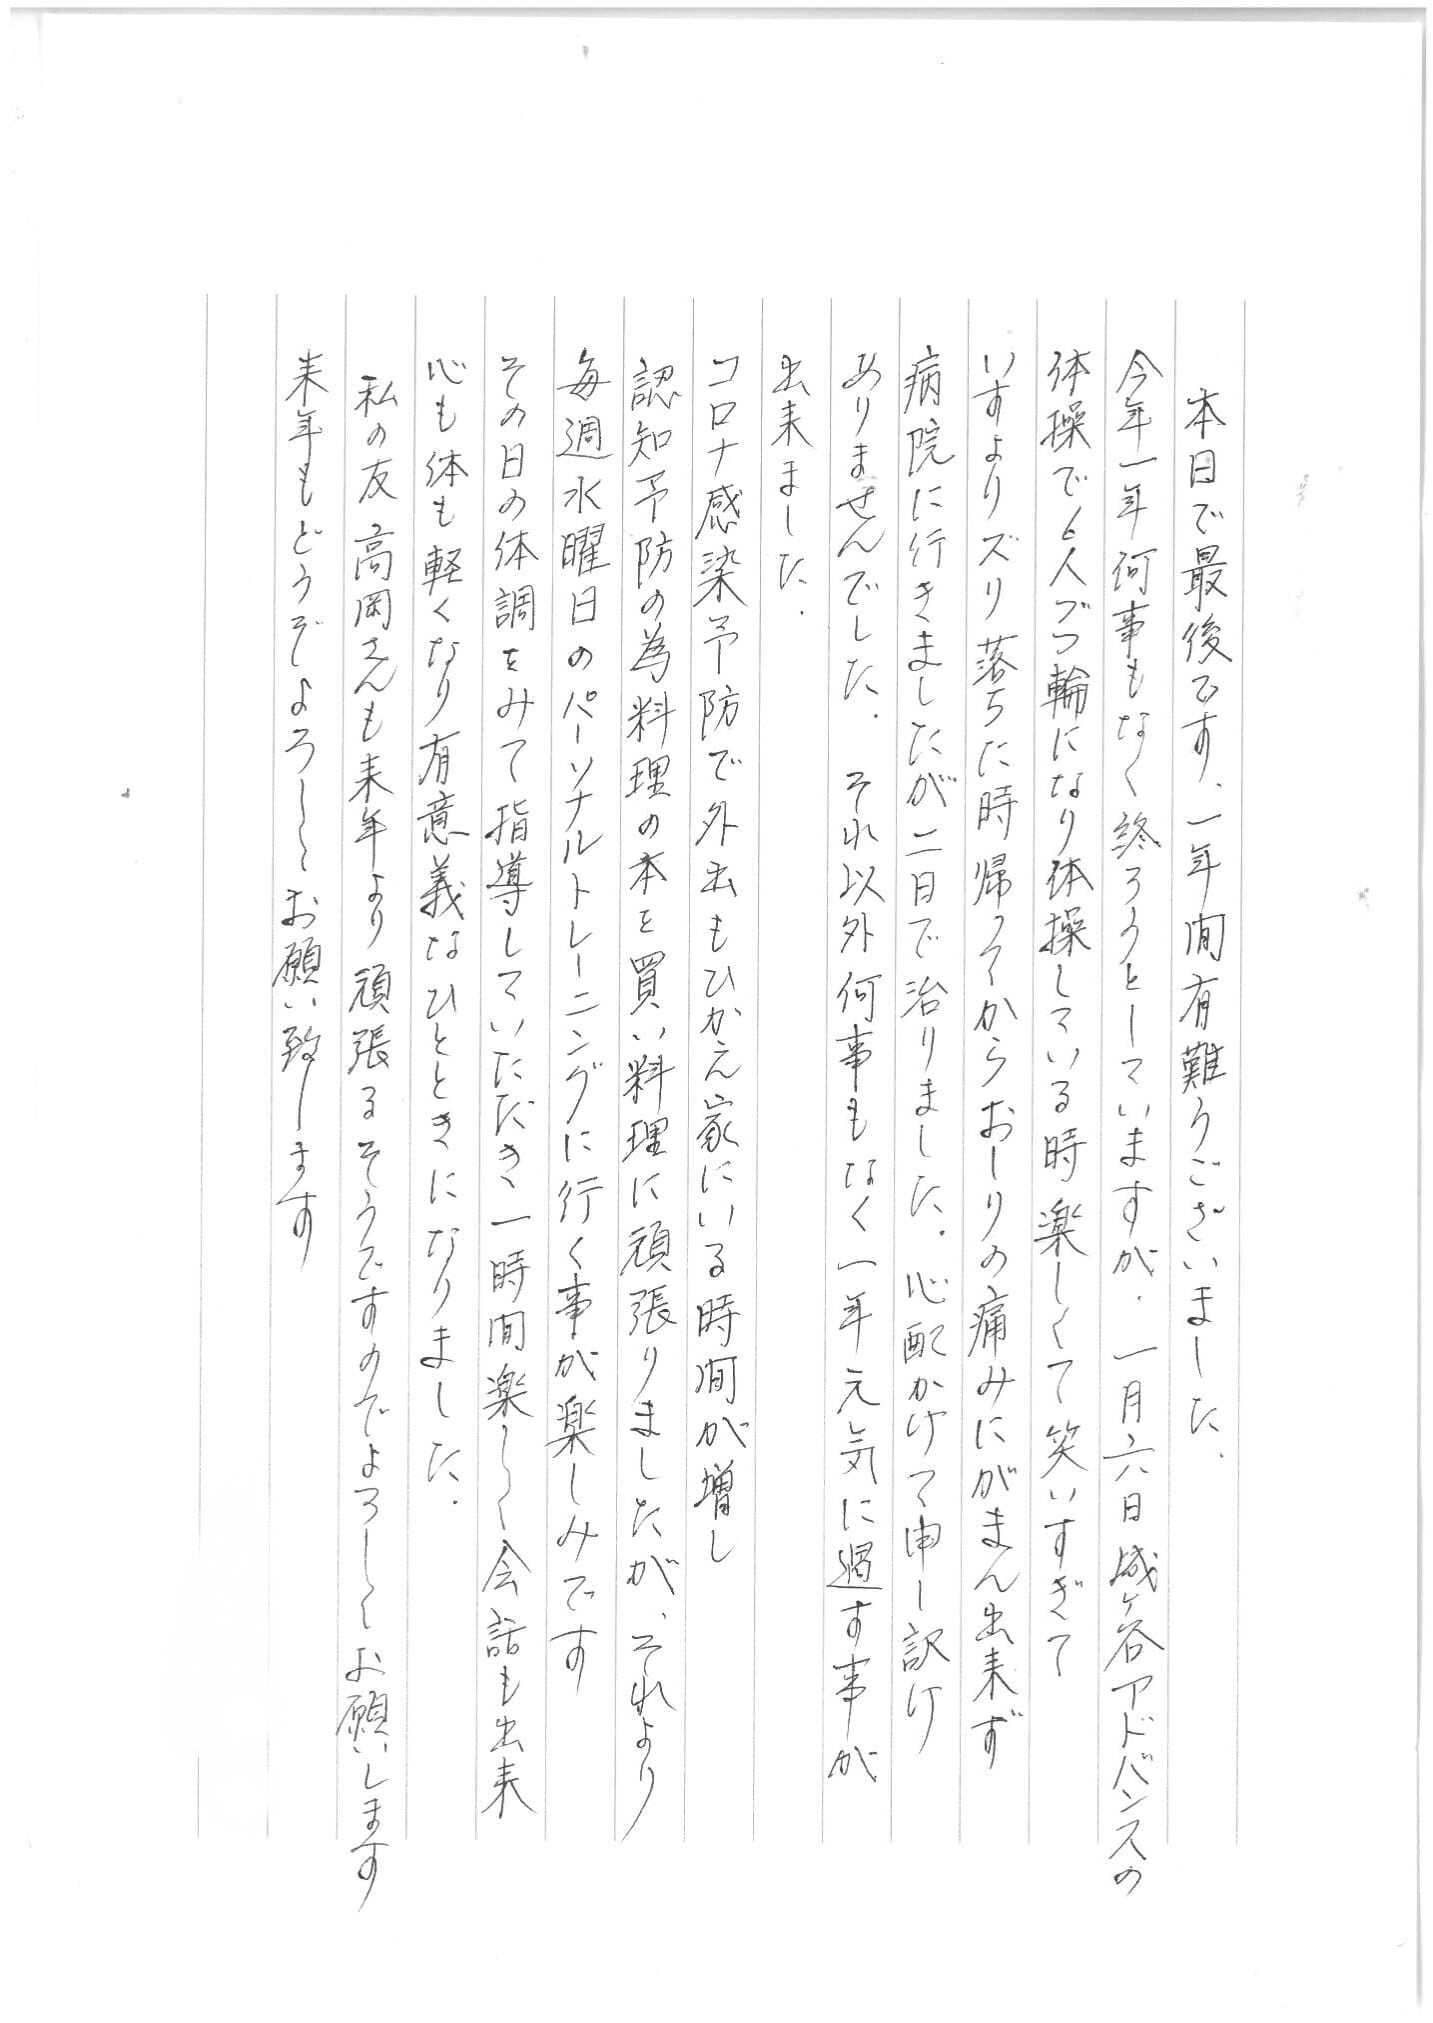 本日で最後です、一年間有難うございました.
今年一年何事もなく終ろうとしていますが. 一月六日城ヶ谷アドバンスの
体操で6人づつ輪になり体操している時楽しくて笑いすぎて
いすよりズリ落ちた時帰ってからおしりの痛みにがまん出来ず
病院に行きましたが二日で治りました. 心配かけて申し訳け
ありませんでした. それ以外何事もなく一年元気に過す事が
出来ました.
コロナ感染予防で外出もひかえ家にいる時間が増し
認知予防の為料理の本を買い料理に頑張りましたが、それより
毎週水曜日のパーソナルトレーニングに行く事が楽しみです
その日の体調をみて指導していただき一時間楽しく会話も出来
心も体も軽くなり有意義なひとときになりました.
私の友高岡さんも来年より頑張るそうですのでよろしくお願いします
来年もどうぞよろしくお願い致します